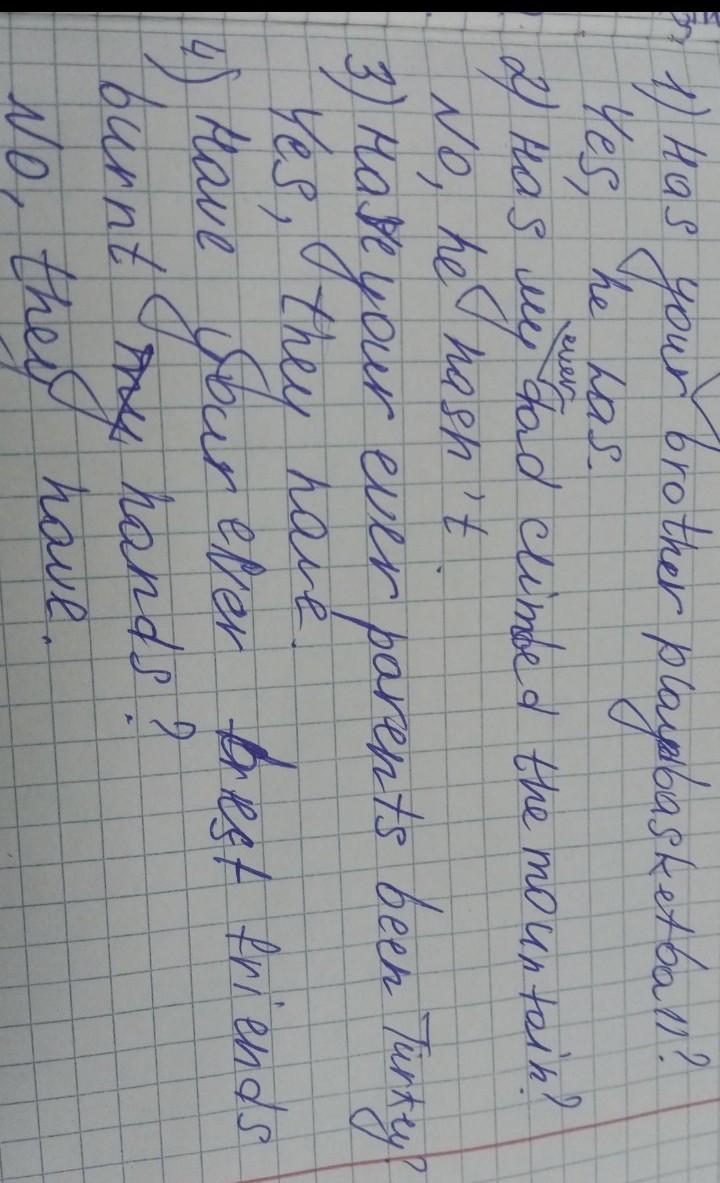 1) Has your brother play basketball?
Yes, he has.
ever
2) Has my dad climbed the mountain?
No, he hasn't.
3) Have your ever parents been Turkey?
Yes, they have.
4) Have your ever best friends
burnt hands?
No, they have.